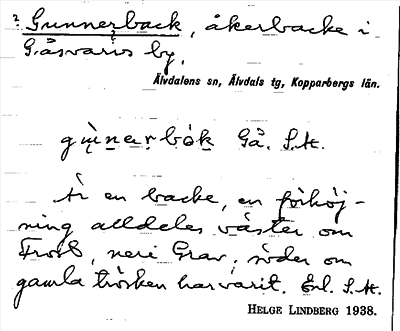 ? Gunnerback, åkerbacke i
Gåsvarvs by,
Älvdalens sn, Älvdals tg, Kopparbergs län.
gùnarbòk Gå. S.H.
Är en backe, en förhöj-
ning alldeles väster om
Frost, neri Grav, söder om
gamla trösken har varit. Enl. S.H.
HELGE LINDBERG 1938.